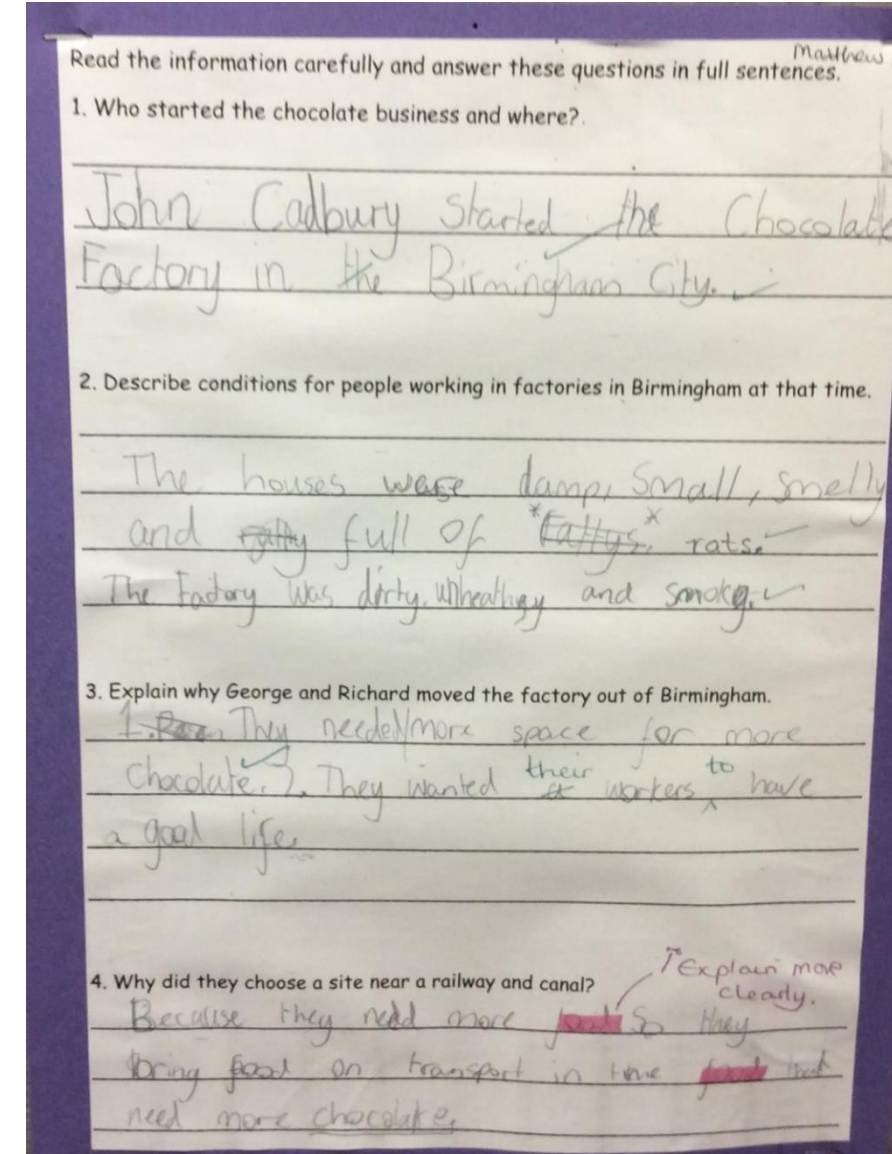 Matthew
Read the information carefully and answer these questions in full sentences.
1. Who started the chocolate business and where?.
John Cadbury Started the Chocolate
Factory in the Birmingham City.
2. Describe conditions for people working in factories in Birmingham at that time.
The houses were damp, Small, Smelly
and full of rats.
The Factory was dirty, and smoky.
3. Explain why George and Richard moved the factory out of Birmingham.
1. They needed more space for more
Chocolate. 2. They wanted their workers to have
a good life.
4. Why did they choose a site near a railway and canal?
↑Explain more
clearly.
Because they need more food So they
bring food on transport in time food that
need more chocolate.